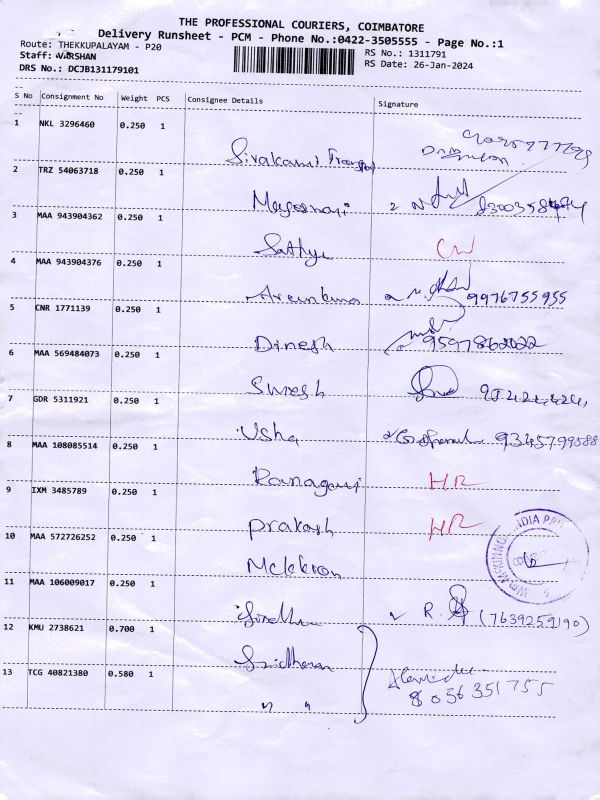 THE PROFESSIONAL COURIERS, COIMBATORE
Delivery Runsheet - PCM - Phone No.:0422-3505555 - Page No.:1
Route: THEKKUPALAYAM - P20
RS No.: 1311791
Staff: VARSHAN
RS Date: 26-Jan-2024
DRS No.: DCJB131179101
S No Consignment No Weight PCS Consignee Details Signature
1 NKL 3296460 0.250 1
Sivakami Transport
2 TRZ 54063718 0.250 1
3 MAA 943904362 0.250 1
Sathya CW
4 MAA 943904376 0.250 1
Arunkumar 9976755955
5 CNR 1771139 0.250 1
Dinesh 9597862022
6 MAA 569484073 0.250 1
Suresh
7 GDR 5311921 0.250 1
Usha 9345799588
8 MAA 108085514 0.250 1
HR
9 IXM 3485789 0.250 1
Prakash HR
10 MAA 572726252 0.250 1
11 MAA 106009017 0.250 1
R. (7639259190)
12 KMU 2738621 0.700 1
Sridharan
13 TCG 40821380 0.580 1
8056351755
" "